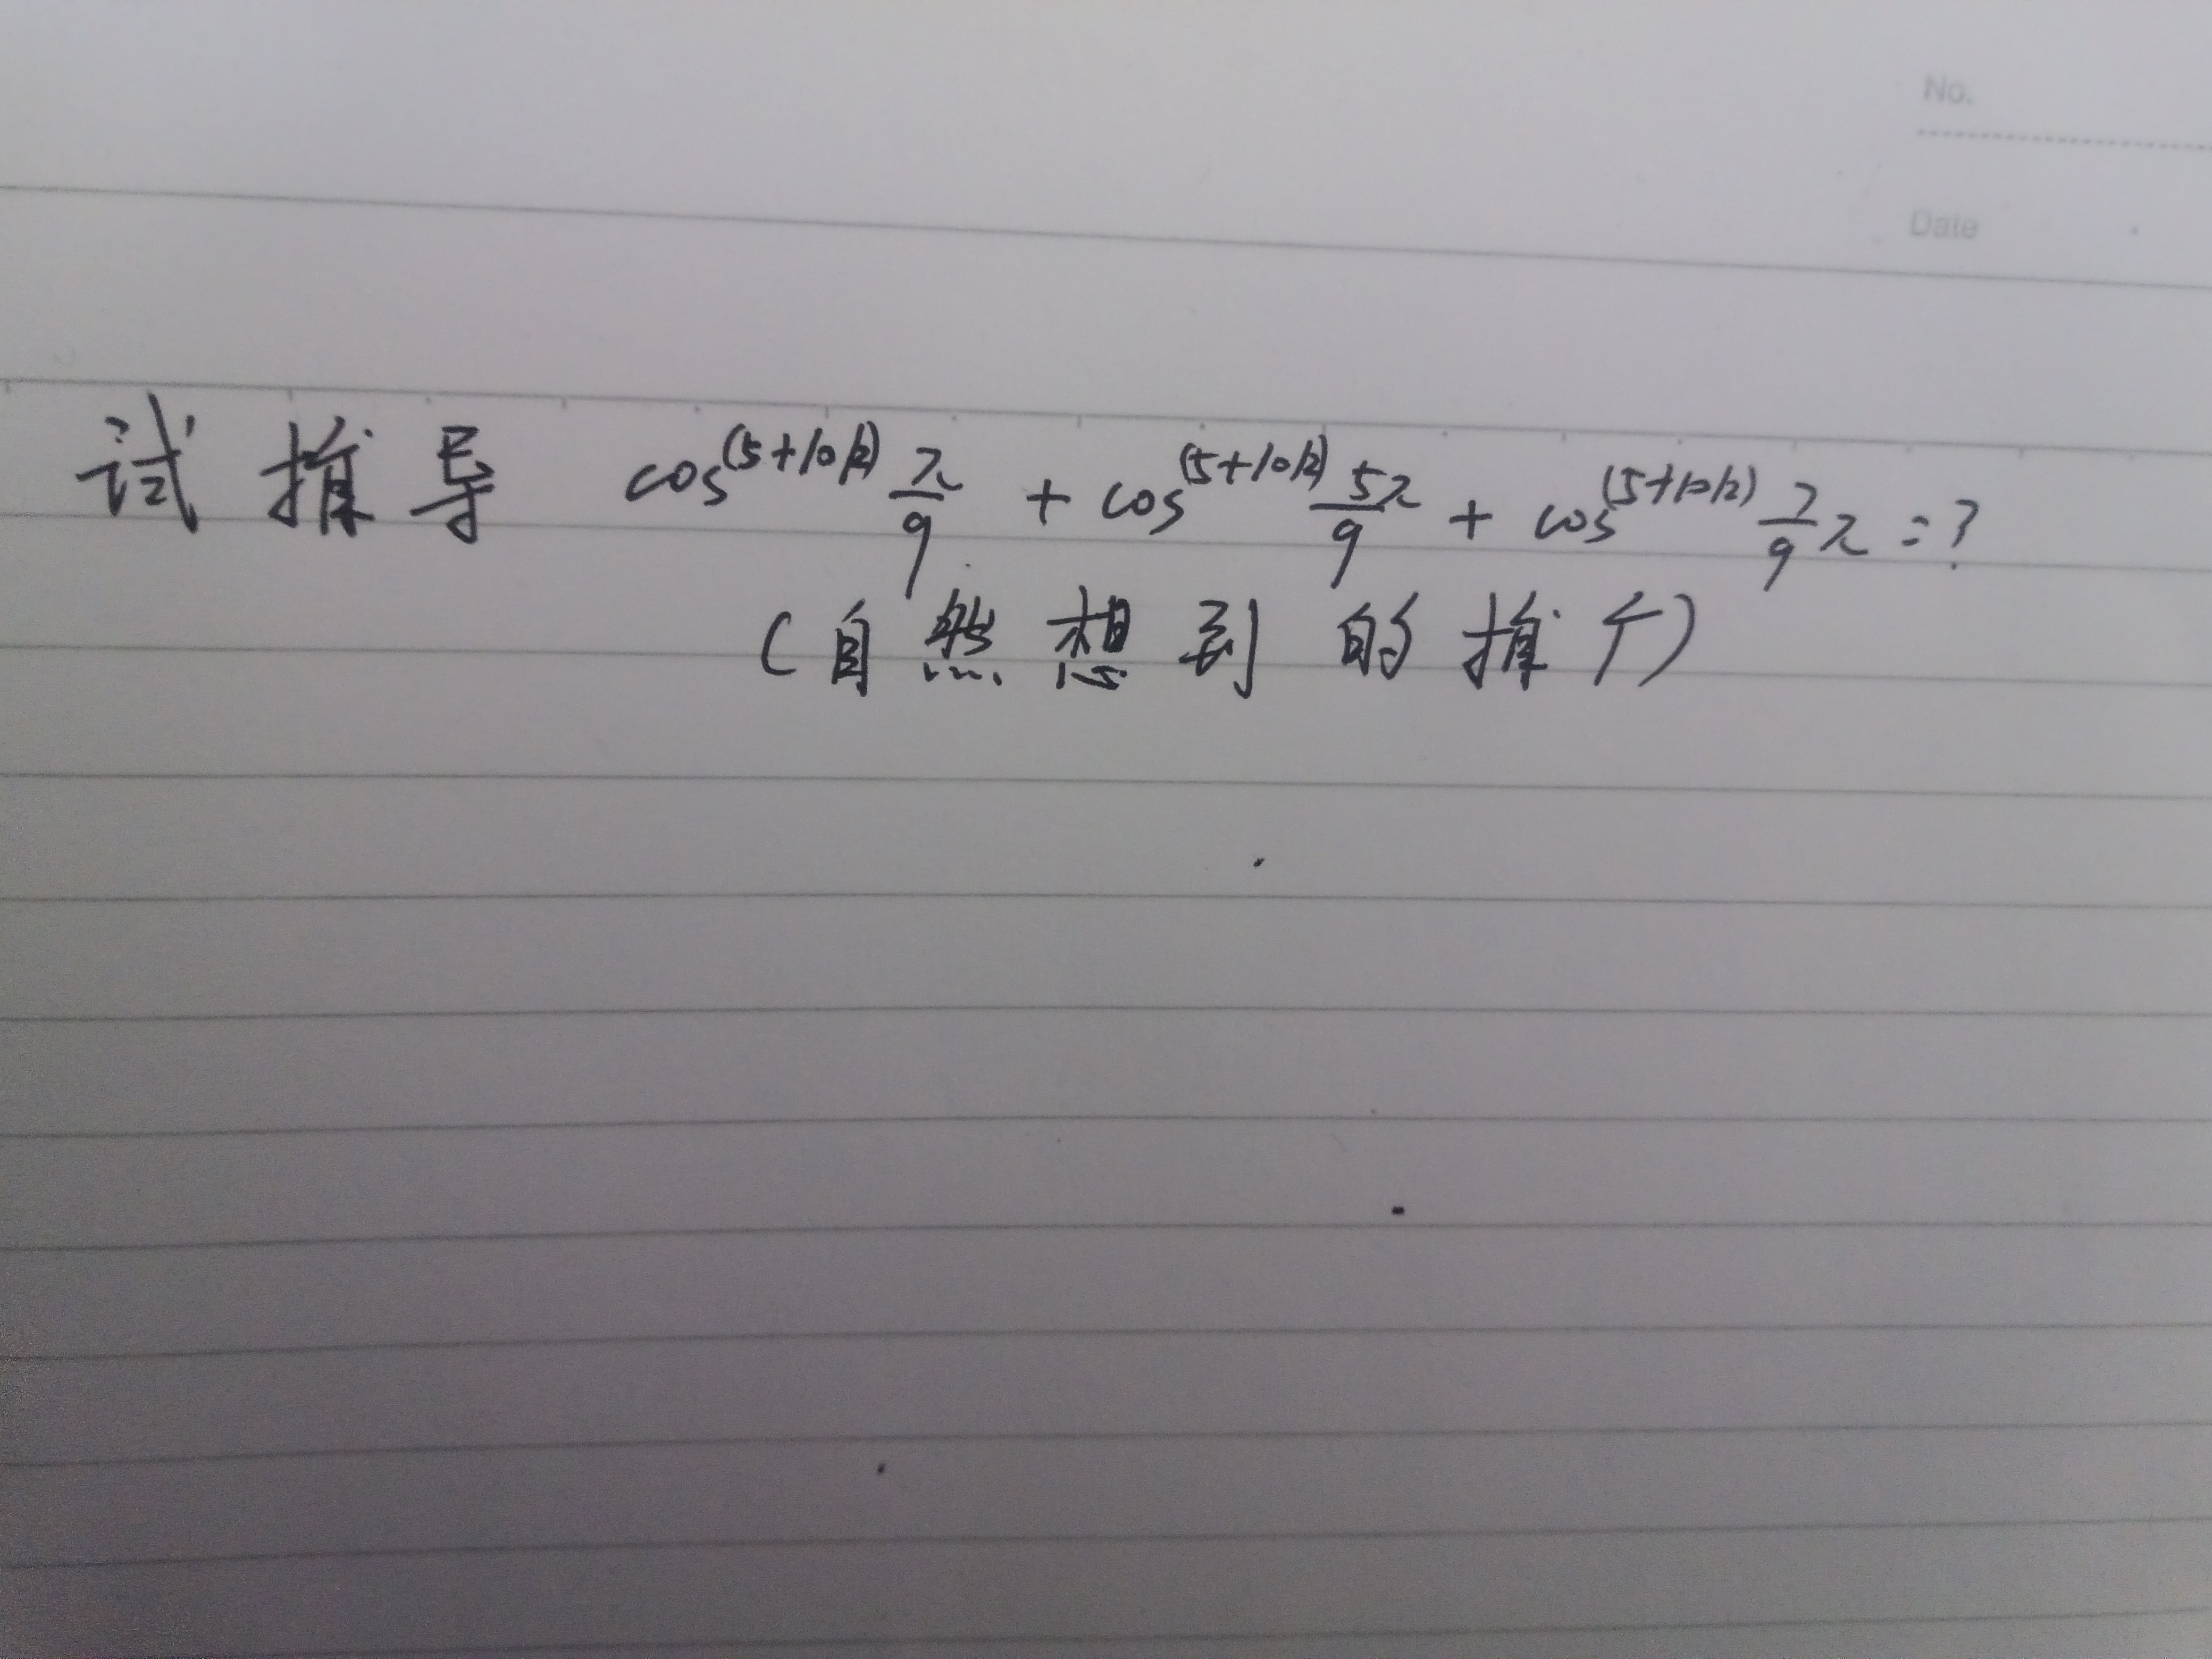 No.
Date
试推导 cos^(5+10k) π/9 + cos^(5+10k) 5π/9 + cos^(5+10k) 7/9 π = ?
(自然想到的推广)